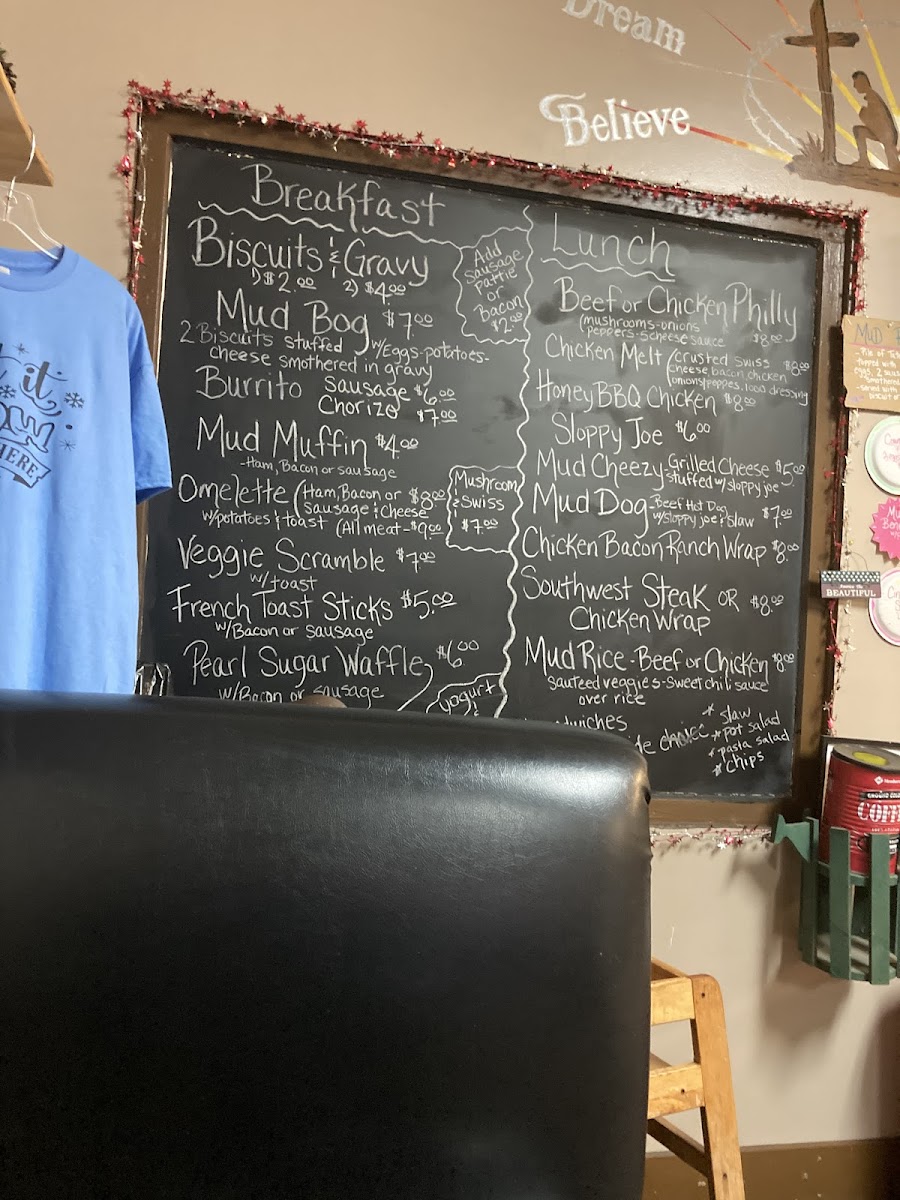 Dream
Believe
Breakfast
Biscuits & Gravy
1) $2.00 2) $4.00
Add
Sausage
Pattie
or
Bacon
$2.00
Mud Bog $7.00
2 Biscuits stuffed w/Eggs-potatoes-
cheese smothered in gravy
Burrito Sausage $6.00
Chorizo $7.00
Mud Muffin $4.00
-Ham, Bacon or sausage
Omelette (Ham, Bacon or $8.00
Sausage & Cheese
w/potatoes & toast (All meat-$9.00
Mushroom
& Swiss
$7.00
Veggie Scramble $7.00
w/toast
French Toast Sticks $5.00
w/Bacon or Sausage
Pearl Sugar Waffle $6.00
w/Bacon or sausage
yogurt
Lunch
Beef or Chicken Philly
(mushrooms-onions
peppers-5cheese sauce $8.00
Chicken Melt (crusted swiss $8.00
cheese bacon chicken
onions/peppes. 1000 dressing
Honey BBQ Chicken $8.00
Sloppy Joe $6.00
Mud Cheezy-Grilled Cheese $5.00
stuffed w/sloppy joe
Mud Dog-Beef Hot Dog $7.00
w/sloppy joe & Slaw
Chicken Bacon Ranch Wrap $8.00
Southwest Steak OR $8.00
Chicken Wrap
Mud Rice-Beef or Chicken $8.00
sauteed veggies-sweet chili sauce
over rice
choice
* slaw
* pot salad
* pasta salad
* chips
it
HERE
MUD
BEAUTIFUL
COFF